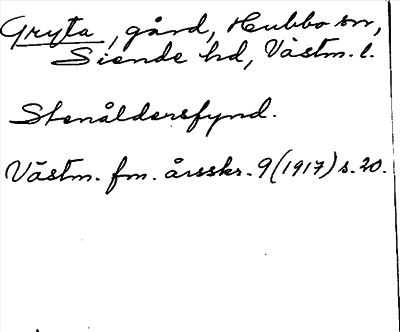 Gryta, gård, Hubbo sn,
Siende hd, Västm. l.
Stenåldersfynd.
Västm. fm. årsskr. 9 (1917) s. 20.